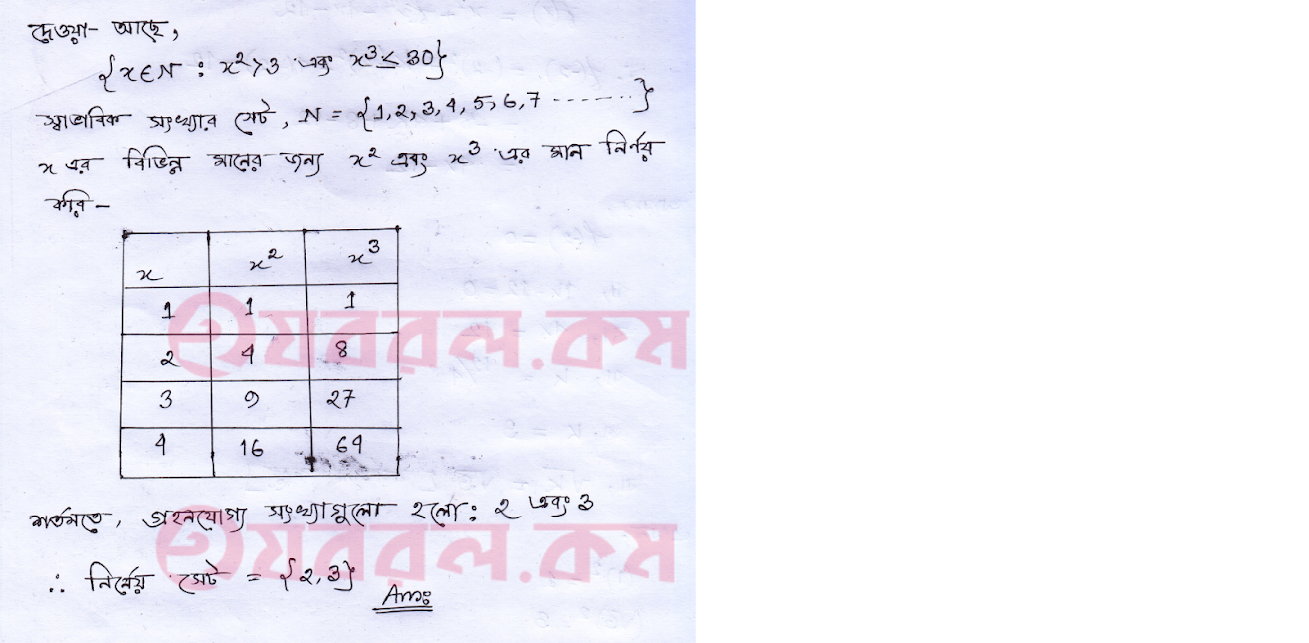 দেওয়া আছে,
{x∈N : x²>3 এবং x³≤30}
স্বাভাবিক সংখ্যার সেট, N = {1,2,3,4,5,6,7 ---------}
x এর বিভিন্ন মানের জন্য x² এবং x³ এর মান নির্ণয়
করি-
x x² x³
1 1 1
2 4 8
3 9 27
4 16 64
শর্তমতে, গ্রহনযোগ্য সংখ্যাগুলো হলো: 2 এবং 3
∴ নির্ণেয় সেট = {2,3}
Ans:
যবরল.কম
যবরল.কম